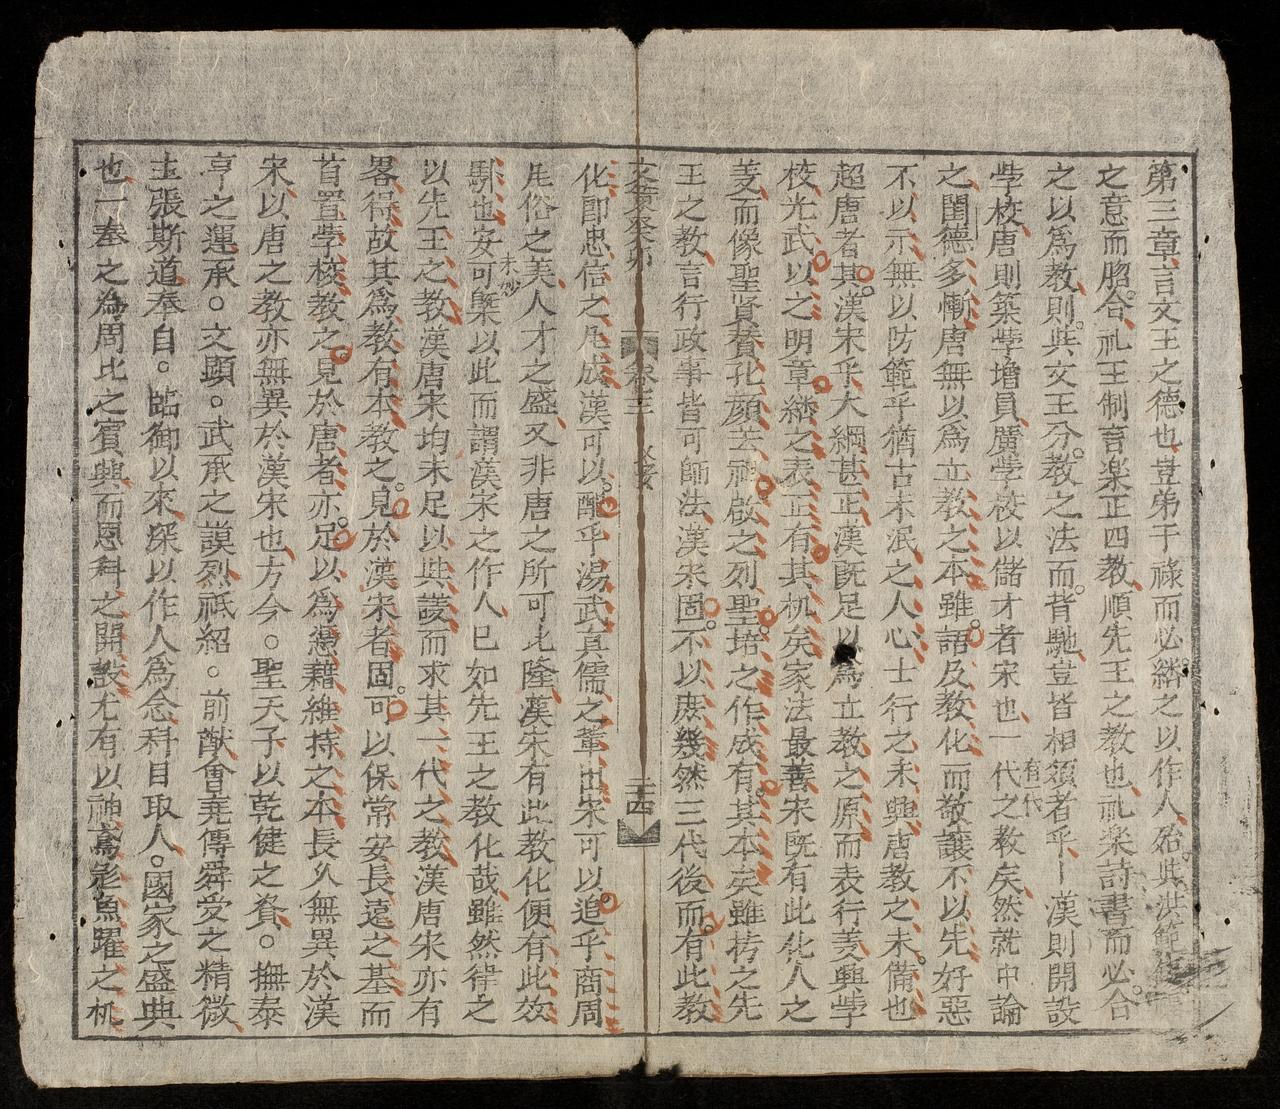 第三章言文王之德也豈弟干祿而必繼之以作人殆與洪範
之意而脗合礼王制言楽正四教順先王之教也礼楽詩書而必合
之以為教則與文王分教之法而背馳豈皆相須者乎漢則開設
學校唐則築學增員廣學校以儲才者宋也一代之教矣然就中論
有一代
之閨德多慚唐無以為立教之本雖語及教化而敬讓不以先好惡
不以示無以防範乎猶古未泯之人心士行之未興唐教之未備也
超唐者其漢宋乎大綱甚正漢既足以為立教之原而表行羙興學
校光武以之明章繼之表正有其机矣家法最善宋既有此化人之
羙而像聖賢賛孔顔芸祖啟之列聖培之作成有其本矣雖揆之先
王之教言行政事皆可師法漢宋固不以庶幾然三代後而有此教
卷三
二十四
化即忠信之凡成漢可以配乎湯武真儒之輩出宋可以追乎商周
凡俗之美人才之盛又非唐之所可此隆漢宋有此教化便有此效
未妙
馴也安可槩以此而謂漢宋之作人已如先王之教化哉雖然律之
以先王之教漢唐宋均未足以與議而求其一代之教漢唐宋亦有
畧得故其為教有本教之見於漢宋者固可以保常安長遠之基而
首置學校教之見於唐者亦足以為憑藉維持之本長久無異於漢
宋以唐之教亦無異於漢宋也方今。聖天子以乾健之資。撫泰
亨之運承。文顯。武承之謨烈祗紹。前猷會堯傳舜受之精微
主張斯道奉自。臨御以來琛以作人為念科目取人。國家之盛典
也一奉之為周比之賓興而恩科之開設尤有以神鳶飛魚躍之机